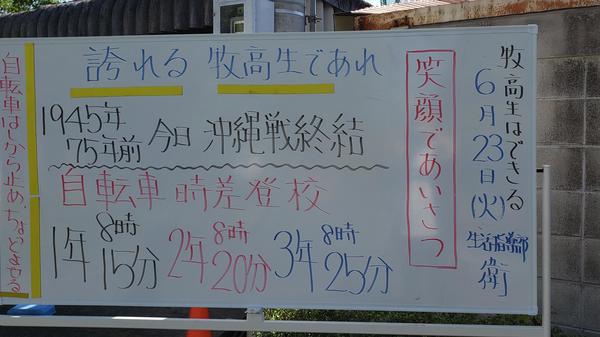 牧高生はできる
6月23日(火)
生活指導部
衛
笑顔であいさつ
誇れる 牧高生であれ
1945年
75年前 今日 沖縄戦終結
自転車時差登校
1年 8時15分 2年 8時20分 3年 8時25分
自転車はしから止め、ちょいとよせる